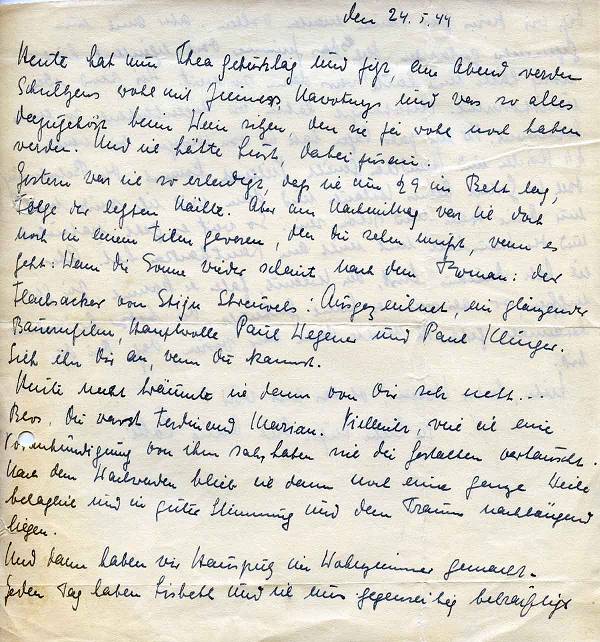 den 24. 5. 44
Heute hat nun Thea Geburtstag und jetzt, am Abend werden
Schultzens wohl mit Navotnys und was so alles
dazugehört beim Wein sitzen, den sie ja wohl noch haben
werden. Und ich hätte Lust, dabei zu sein.
Gestern war ich so erledigt, daß ich um ½9 im Bett lag,
Folge der letzten Nächte. Aber am Nachmittag war ich doch
noch in einem Film gewesen, den Du sehen mußt, wenn es
geht: Wenn die Sonne wieder scheint nach dem Roman: der
Flachsacker von Stijn Streuvels: Ausgezeichnet, ein glänzender
Bauernfilm, Hauptrolle Paul Wegener und Paul Klinger.
Sieh ihn Dir an, wenn Du kannst.
Heute nacht träumte ich dann von Dir sehr nett...
Du warst Ferdinand Marian. Vielleicht, weil ich eine
Vorankündigung von ihm sah, haben sich die Gestalten vertauscht.
Nach dem Wachwerden blieb ich dann noch eine ganze Weile
behaglich und in guter Stimmung und dem Traum nachhängend
liegen.
Und dann haben wir Hausputz im Wohnzimmer gemacht.
Jeden Tag haben Lisbeth und ich uns gegenseitig bekräftigt